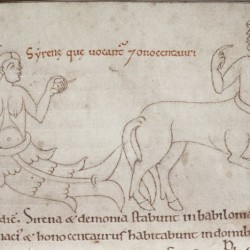 Syrene que uocant᷒ ⁊ onocentauri
die᷒. Sirena & demonia stabunt in babiloni
& honocentaurus habitabunt in domi